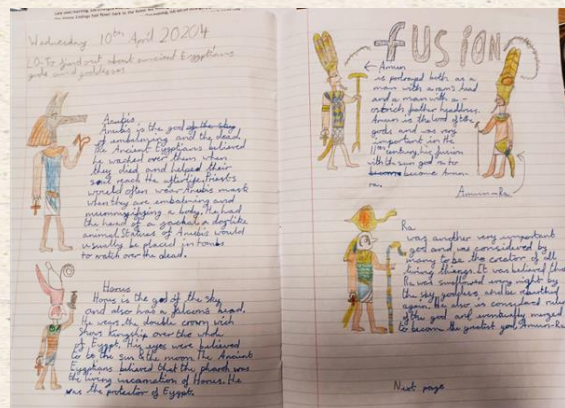 Wednesday 10th April 20204
LO-To find out about ancient Egyptians
gods and goddesses
Anubis
Anubis is the god of the sky
of embalming and the dead.
The Ancient Egyptians believed
he watched over them when
they died and helped their
soul reach the afterlife. Priests
would often wear Anubis mask
when they are embalming and
mummifying a body. He had
the head of a jackal, a doglike
animal. Statues of Anubis would
usually be placed in tombs
to watch over the dead.
Horus
Horus is the god of the sky
and also has a falcons head.
He wears the double crown wich
shows kingship over the whole
of Egypt. His eyes were believed
to be the sun & the moon. The Ancient
Egyptians believed that the pharoh was
the living incarnation of Horus. He
was the protector of Egypt.
fUSION
Amun
is portrayed both as a
man with a ram's head
and a man with a
ostrich feather headdress.
Amun is the lord of the
gods and was very
important in the
11th century, his fusion
with the sun god ra to
become Amun-
ra.
Amun-Ra
Ra
was another very important
god and was considered by
many to be the creator of all
living things. It was believed that
Ra was swallowed every night by
the sky goddess and be
again. He is
of the god and eventually merged
to become the greatest god, Amun-Ra
Next page